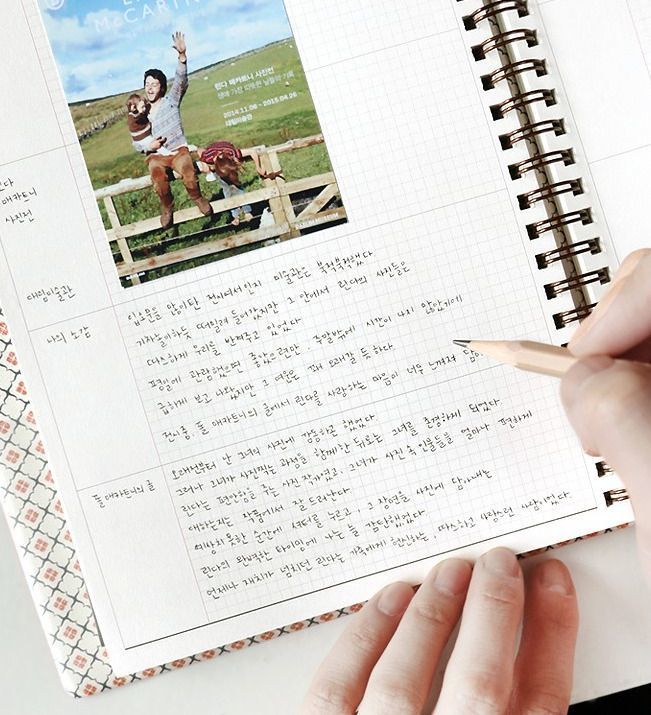 McCARTN
린다 매카트니 사진전
생애 가장 따뜻한 날들의 기록
2014.11.06 ~ 2015.04.26
대림미술관
매카트니
사진전
대림미술관
나의 소감
입소문을 많이탄 전시여서인지 미술관은 북적북적했다
기차놀이하듯 떠밀려 들어갔지만 그 안에서 린다의 사진들은
따스하게 우리를 반겨주고 있었다
평일에 관람했으면 좋았으련만 주말밖에 시간이 나지 않았기에
급하게 보고 나왔지만 그 여운은 꽤 오래갈 듯 하다.
전시중, 폴 매카트니의 글에서 린다를 사랑하는 마음이 너무 느껴져
폴 매카트니의 글
오래전부터 난 그녀의 사진에 감동하곤 했었다
그러나 그녀가 사진찍는 과정을 함께한 뒤로는 그녀를 존경하게 되었다.
린다는 편안함을 주는 사진 작가였고, 그녀가 사진 속 인물들을 얼마나 편하게
대하는지는 작품에서 잘 드러난다.
예상치 못한 순간에 셔터를 누르고, 그 장면을 사진에 담아내는
린다의 완벽한 타이밍에 나는 늘 감탄했었다
언제나 재치가 넘치던 린다는 가족에게 헌신하는, 따스하고 사랑스런 사람이었다.